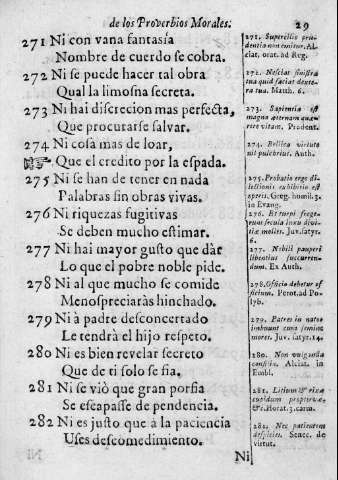 de los Proverbios Morales. 29
271 Ni con vana fantasía
Nombre de cuerdo se cobra.
272 Ni se puede hacer tal obra
Qual la limosna secreta.
273 Ni hai discrecion mas perfecta,
Que procurarse salvar.
274 Ni cosa mas de loar,
☞ Que el credito por la espada.
275 Ni se han de tener en nada
Palabras sin obras vivas.
276 Ni riquezas fugitivas
Se deben mucho estimar.
277 Ni hai mayor gusto que dàr
Lo que el pobre noble pide.
278 Ni al que mucho se comide
Menospreciaràs hinchado.
279 Ni à padre desconcertado
Le tendrà el hijo respeto.
280 Ni es bien revelar secreto
Que de ti solo se fia.
281 Ni se viò que gran porfia
Se escapasse de pendencia.
282 Ni es justo que à la paciencia
Uses descomedimiento.
Ni
271. Supercilio prudentia non emitur. Alciat. orat. ad Reg.
272. Nesciat sinistra tua quid faciat dextera tua. Matth. 6.
273. Sapientia est magna æternam quærere vitam. Prudent.
274. Bellica virtute nil pulchrius. Auth.
275. Probatio ergo dilectionis exhibitio est operis. Greg. humil. 3. in Evang.
276. Et turpi fregerunt secula luxu divitiæ molles. Juv. satyr. 6.
277. Nibili pauperi libentius succurrendum. Ex Auth.
278. Officio debetur officium. Perot. ad Polyb.
279. Patres in natos imbuunt cum semine mores. Juv. satyr. 14.
280. Non vulganda consilia. Alciat. in Embl.
281. Litium & rixæ cupidum &c. Horat. 3. carm.
282. Nec patientem despicies. Senec. de virtut.